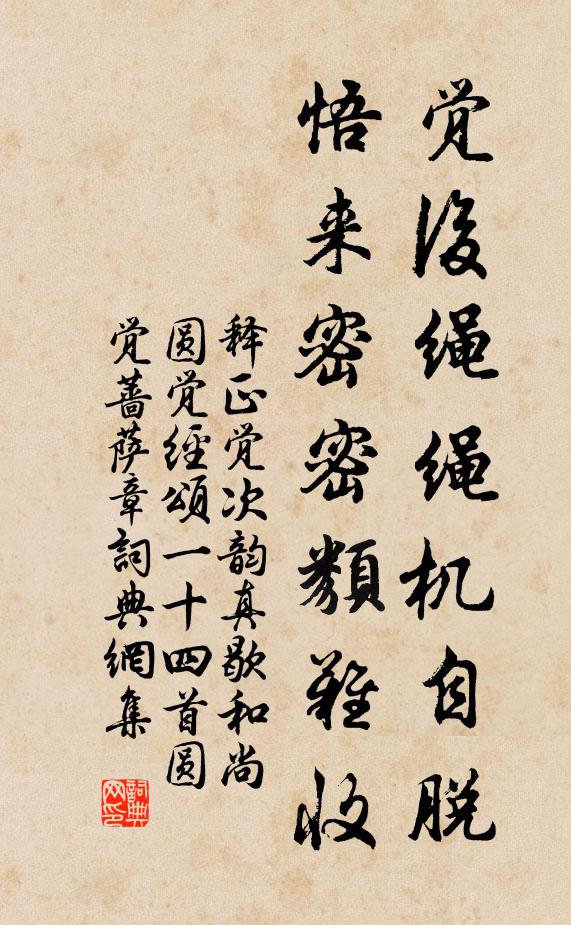 觉后绳绳机自脱
悟来密密类难收
释正觉次韵真歇和尚
圆觉经颂一十四首圆
觉蔷萨章词典网集
词典网印